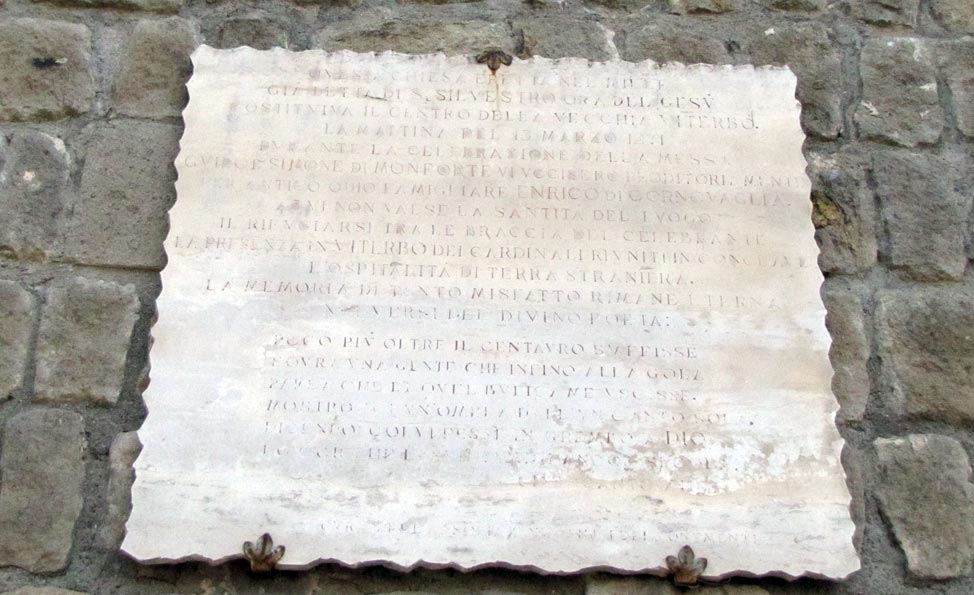 QUESTA CHIESA ERETTA NEL MILLE
GIA DETTA DI S. SILVESTRO ORA DEL GESÙ
COSTITUIVA IL CENTRO DELLA VECCHIA VITERBO.
LA MATTINA DEL 13 MARZO 1271
DURANTE LA CELEBRAZIONE DELLA MESSA
GUIDO E SIMONE DI MONFORTE VI UCCISERO PRODITORIAMENTE
PER ANTICO ODIO FAMIGLIARE ENRICO DI CORNOVAGLIA.
NON VALSE LA SANTITÀ DEL LUOGO
IL RIFUGIARSI TRA LE BRACCIA DEL CELEBRANTE
LA PRESENZA IN VITERBO DEI CARDINALI RIUNITI IN CONCLAVE
L'OSPITALITÀ DI TERRA STRANIERA.
LA MEMORIA DI TANTO MISFATTO RIMANE ETERNA
NEI VERSI DEL DIVINO POETA:
POCO PIÙ OLTRE IL CENTAURO S'AFFISSE
SOVRA UNA GENTE CHE INFINO ALLA GOLA
PAREA CHE DI QUEL BULICAME USCISSE.
MOSTROCCI UN'OMBRA DALL'UN CANTO SOLA
DICENDO: COLUI FESSE IN GREMBO A DIO
LO COR CHE